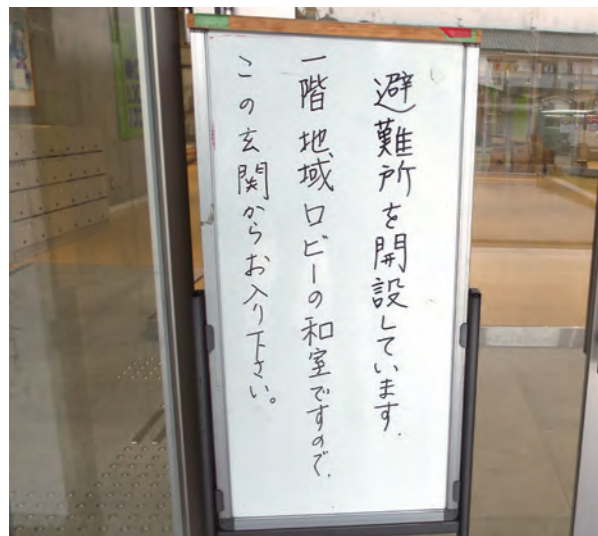 避難所を開設しています.
一階地域ロビーの和室ですので.
この玄関からお入り下さい。